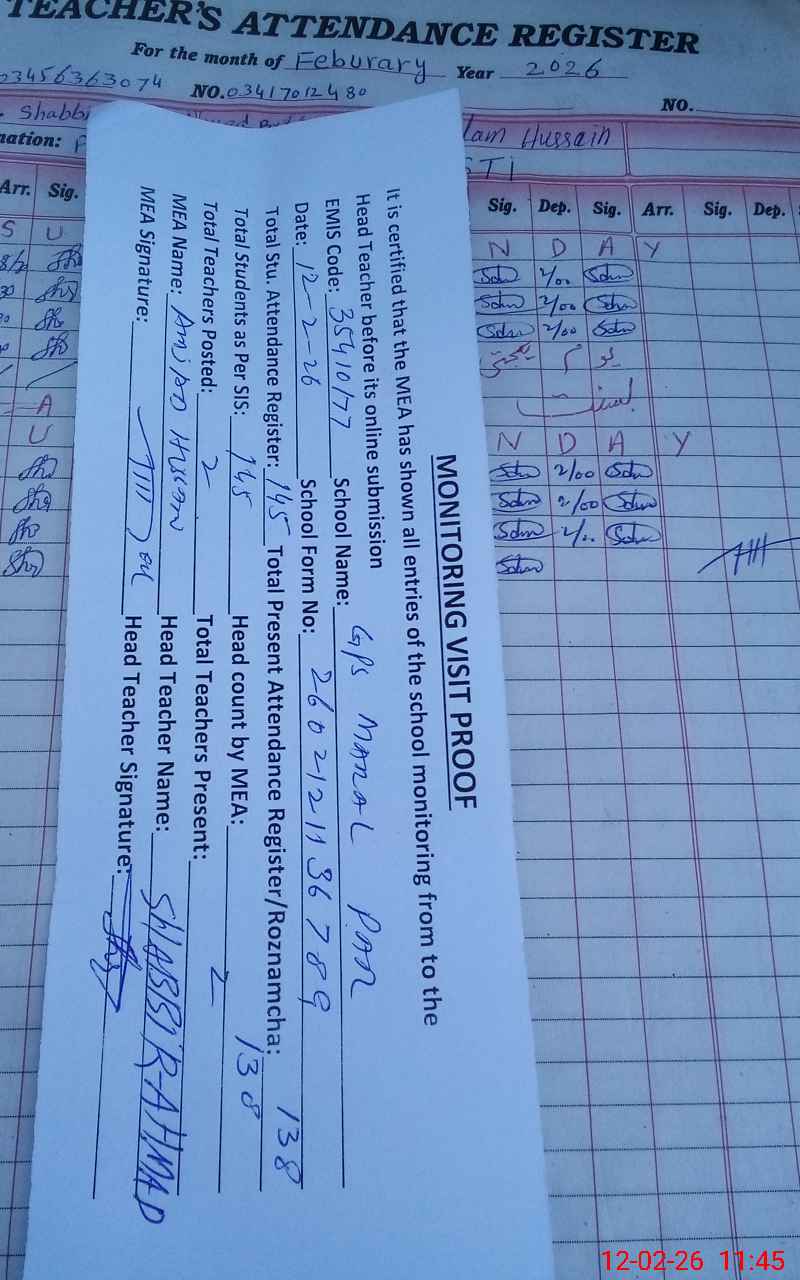 TEACHER'S ATTENDANCE REGISTER
For the month of Feburary Year 2026
03456363074 NO. 03417012480 NO.
Shabbi
lam Hussain
nation:
STI
Arr. Sig. Sig. Dep. Sig. Arr. Sig. Dep.
S U N D A Y
2/00
2/00
2/00
A
U N D A Y
2/00
2/00
MONITORING VISIT PROOF
It is certified that the MEA has shown all entries of the school monitoring from to the
Head Teacher before its online submission
EMIS Code: 35410177 School Name: GPS MARAL PAR
Date: 12-2-26 School Form No: 2602121136789
Total Stu. Attendance Register: 145 Total Present Attendance Register/Roznamcha: 138
Total Students as Per SIS: 145 Head count by MEA: 138
Total Teachers Posted: 2 Total Teachers Present: 2
MEA Name: AMJAD HUSSAIN Head Teacher Name: SHABBIR AHMAD
MEA Signature: Head Teacher Signature:
12-02-26 11:45